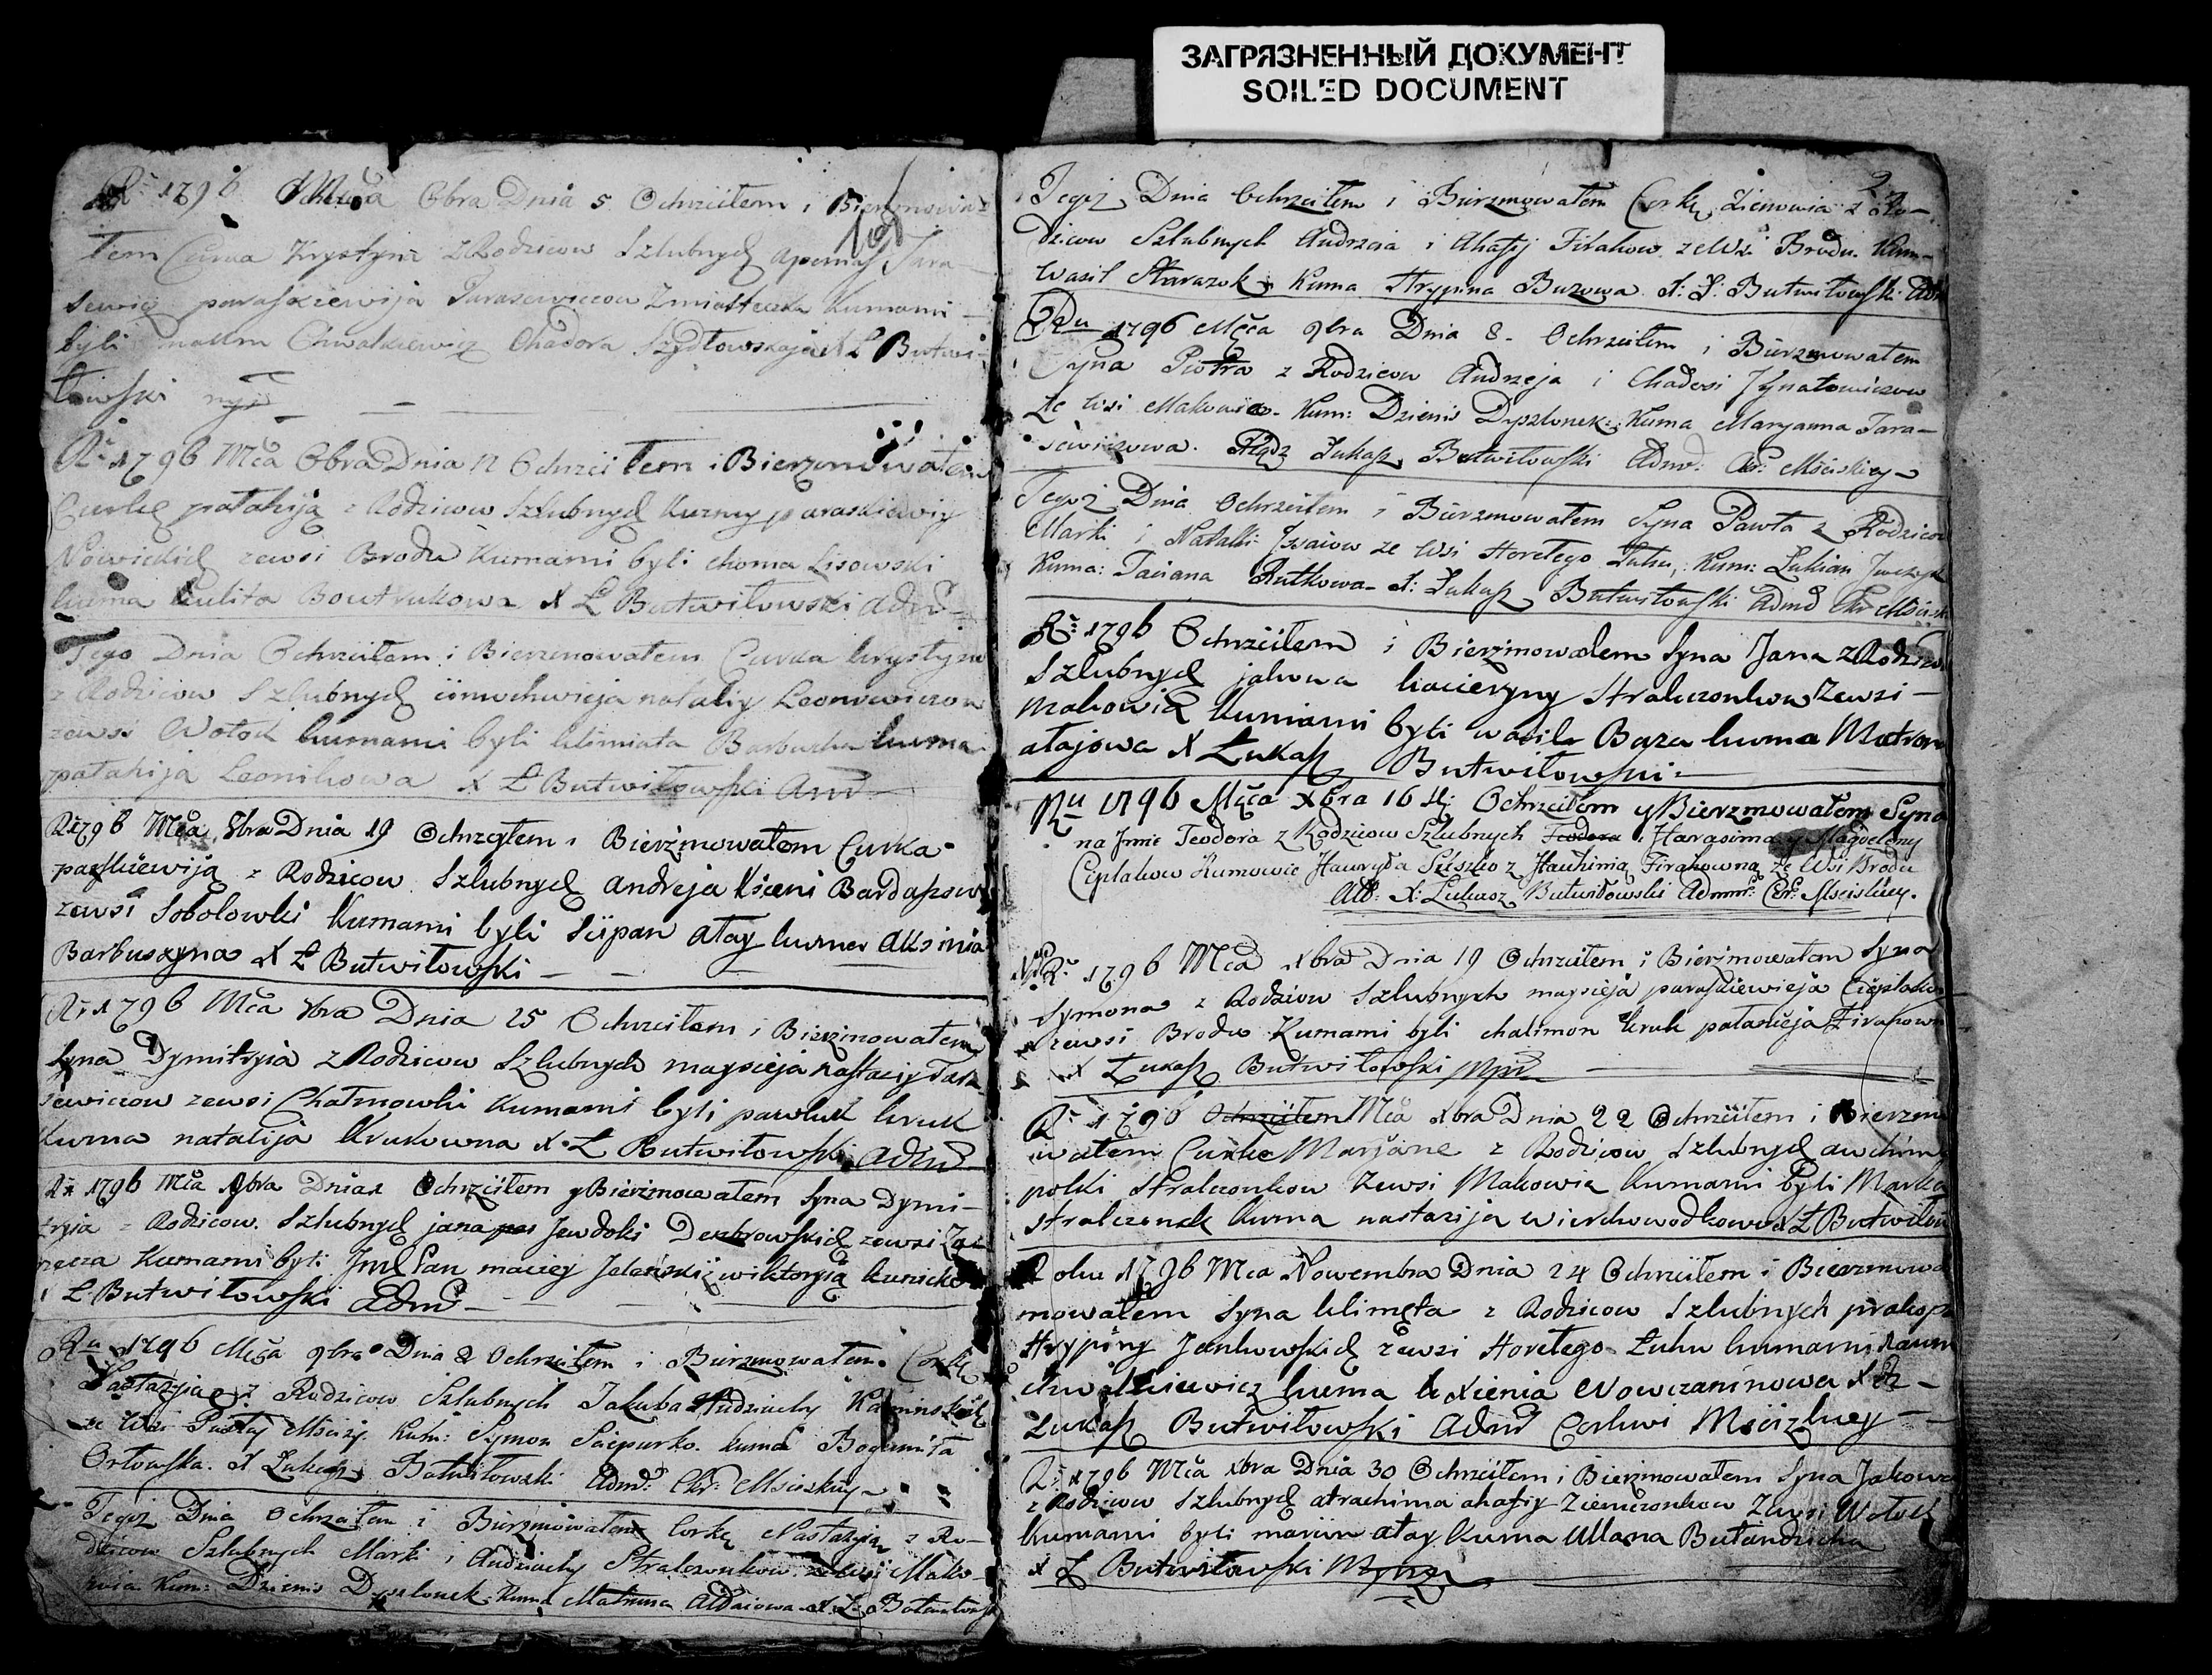 ЗАГРЯЗНЕННЫЙ ДОКУМЕНТ
SOILED DOCUMENT
Rº 1796 Obra Dnia 5 Ochrzciłem i Bierzmowa-
łem Curka Krystyni z Rodzicow Szlubnych Tara-
sewicz paraskiewija Tarasewiczow Zmiasteczka Kumami
byli Chwalkiewicz Chadora Szydłowskaja X Ł Butwi-
łowski
Rº 1796 Mca Obra Dnia 12 Ochrzciłem i Bierzmowałem
Curkę patahiją z Rodzicow Szlubnych Kuzmy paraskiewiy
Nowickich zewsi Brodu Kumami byli choma Lisowski
kuma kulita Boutrukowa X Ł Butwiłowski adm
Tego Dnia Ochrzciłem i Bierzmowałem Curka krystyni
z Rodzicow Szlubnych nataliy Leonowiczow
zewsi Wołok kumami byli klimiata Barbuzka kuma
patahija Leonikowa X Ł Butwiłowski Adm
Rº 1796 Mca 8bra Dnia 19 Ochrzcyłem i Bierzmowałem Curka
paraskiewiją z Rodzicow Szlubnych andreja Kseni Bardaszow
zewsi Sobolowki Kumami byli Sciepan atay kuma aksinia
Barbuszyna X Ł Butwiłowski
Rº 1796 Mca 8bra Dnia 25 Ochrzciłem i Bierzmowałem
Syna Dymitryia z Rodzicow Szlubnych maysieja nastaciy Tara
sewiczow zewsi Chałmowki Kumami byli pawluk kruk
Kuma natalija Krukowna X Ł Butwiłowski Adm
Rº 1796 Mca 9bra Dnia 1 Ochrzciłem y Bierzmowałem Syna Dymi-
tryia z Rodzicow Szlubnych jana Jewdoki Dembrowskich zewsi Za-
rzecza Kumami byli Jmć Pan maciey Jeleński z wiktoryią kunicko
X Ł Butwiłowski Adm
Ru 1796 Mca 9bra Dnia 8 Ochrzciłem i Bierzmowałem Corkę
Nastazyią z Rodzicow Szlubnych Jakuba i Audziuchy Kaminskich
ze Wsi Pustay Mścizy. Kum: Symon Sciepurko. kuma Bogumiła
Orłowska. X Łukasz Butwiłowski Adm: Ckr: Mściskiey
Tegoż Dnia Ochrzciłem i Bierzmowałem Corkę Nastazyią z Ro-
dzicow Szlubnych Marki i Audziuchy Stralczonkow zewsi Mako-
wia Kum: Dzienis Dyszlonek. Kuma Matruna Ałtaiowa X. Ł. Butwiłowsk
2
Tegoż Dnia Ochrzciłem i Bierzmowałem Corkę Zienowia z Ro-
dzicow Szlubnych Andrzeia i Ahafij Firahow zewsi Brodu. Kum
Wasil Kuma Hrypina Buzowa X: Ł: Butwiłowski Adm
Ru 1796 Mca 9bra Dnia 8. Ochrzciłem i Bierzmowałem
Syna Piotra z Rodzicow Andrzeja i Chadosi Jhnatowiczow
ze Wsi Makowia. Kum: Dzienis Dyszlonek: Kuma Maryanna Tara-
siewiczowa. Xiądz Łukasz Butwiłowski Adm: Ckr: Mściskiey
Tegoż Dnia Ochrzciłem i Bierzmowałem Syna Pawła z Rodzicow
Marki i Natalli Jssaiow ze Wsi Horełego Łuhu, Kum: Łukian
Kuma: Taciana Rutkowa X: Łukasz Butwiłowski Adm Ckr Mścisk
Rº 1796 Ochrzciłem i Bierzmowałem Syna Jana z Rodzicow
Szlubnych jakowa kacieryny Stralczonkow zewsi
makowia kumami byli wasil Baza kuma Matrona
atajowa X Łukasz Butwiłowski
Ru 1796 Mca Xbra 16 st: Ochrzciłem y Bierzmowałem Syna
na Jmie Teodora z Rodzicow Szlubnych Teodora Harasima y Magdeleny
Cieplakow Kumowie Hawryła z Hauhinią Firahowną ze Wsi Brodu
Att: X: Łukasz Butwiłowski Admn: Ckr: Mściskiey.
Rº 1796 Mca Xbra Dnia 19 Ochrzciłem i Bierzmowałem Syna
Symona z Rodzicow Szlubnych maysieja paraskiewieja Cieplakow
zewsi Brodu Kumami byli chalimon kruk pałanieja Firahown
X Łukasz Butwiłowski
Rº 1796 Ochrzciłem Mca Xbra Dnia 22 Ochrzciłem i Bierzmo
wałem Curke Marjane z Rodzicow Szlubnych auchim
polki Stralczonkow zewsi Makowia Kumami byli Marko
stralczonak kuma nastazija wierchowodkowa X Ł Butwiłow
Roku 1796 Mca Nowembra Dnia 24 Ochrzciłem i Bierzmowa
mowałem Syna klimęta z Rodzicow Szlubnych prakopa
Hrypiny Jankowskich zewsi Horełego Łuhu kumami naum
chwalkiewicz kuma ksienia Nowczaninowa X
Łukasz Butwiłowski Adm Cerkwi Mścizkiey
Rº 1796 Mca Xbra Dnia 30 Ochrzciłem i Bierzmowałem Syna Jakowa
z Rodzicow Szlubnych atrachima ahafiy Zienczonkow zewsi Wołok
kumami byli marcin atay Kuma Ullana Butandzicha
X Ł Butwiłowski